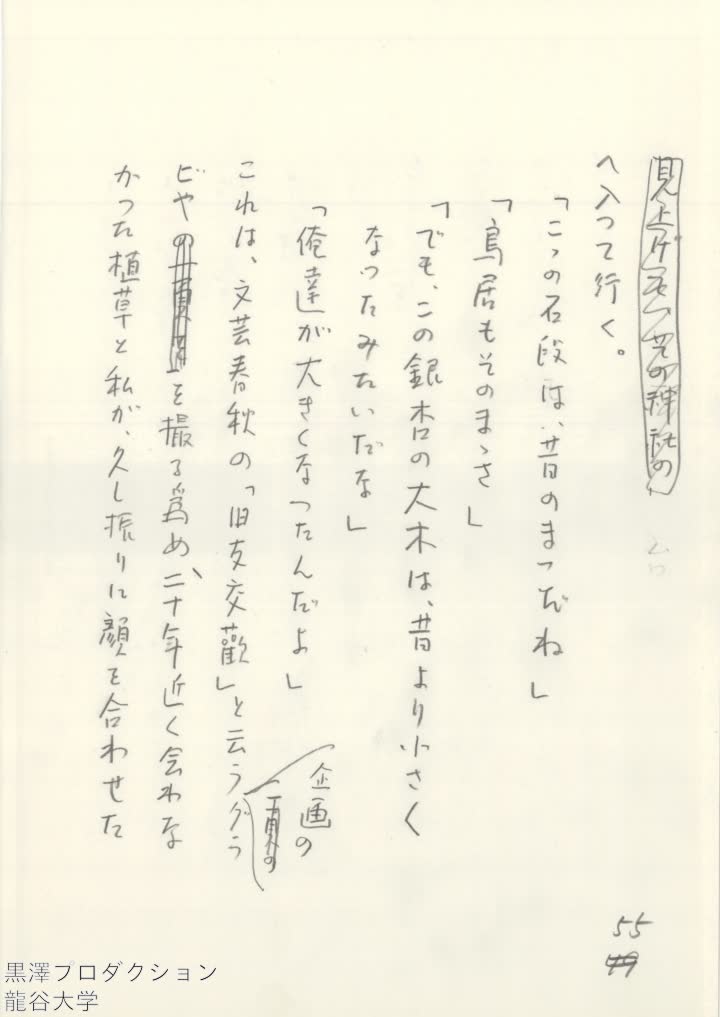 見上げて、その神社の
へ入つて行く。
「こゝの石段は、昔のまつだね」
「鳥居もそのまゝさ」
「でも、この銀杏の大木は、昔より小さく
なつたみたいだな」
「俺達が大きくなつたんだよ」
これは、文芸春秋の「旧友交歡」と云う
企画の
グラ
ビヤ
を撮る為め、二十年近く会わな
かつた植草と私が、久し振りに顔を合わせた
55
49
黒澤プロダクション
龍谷大学